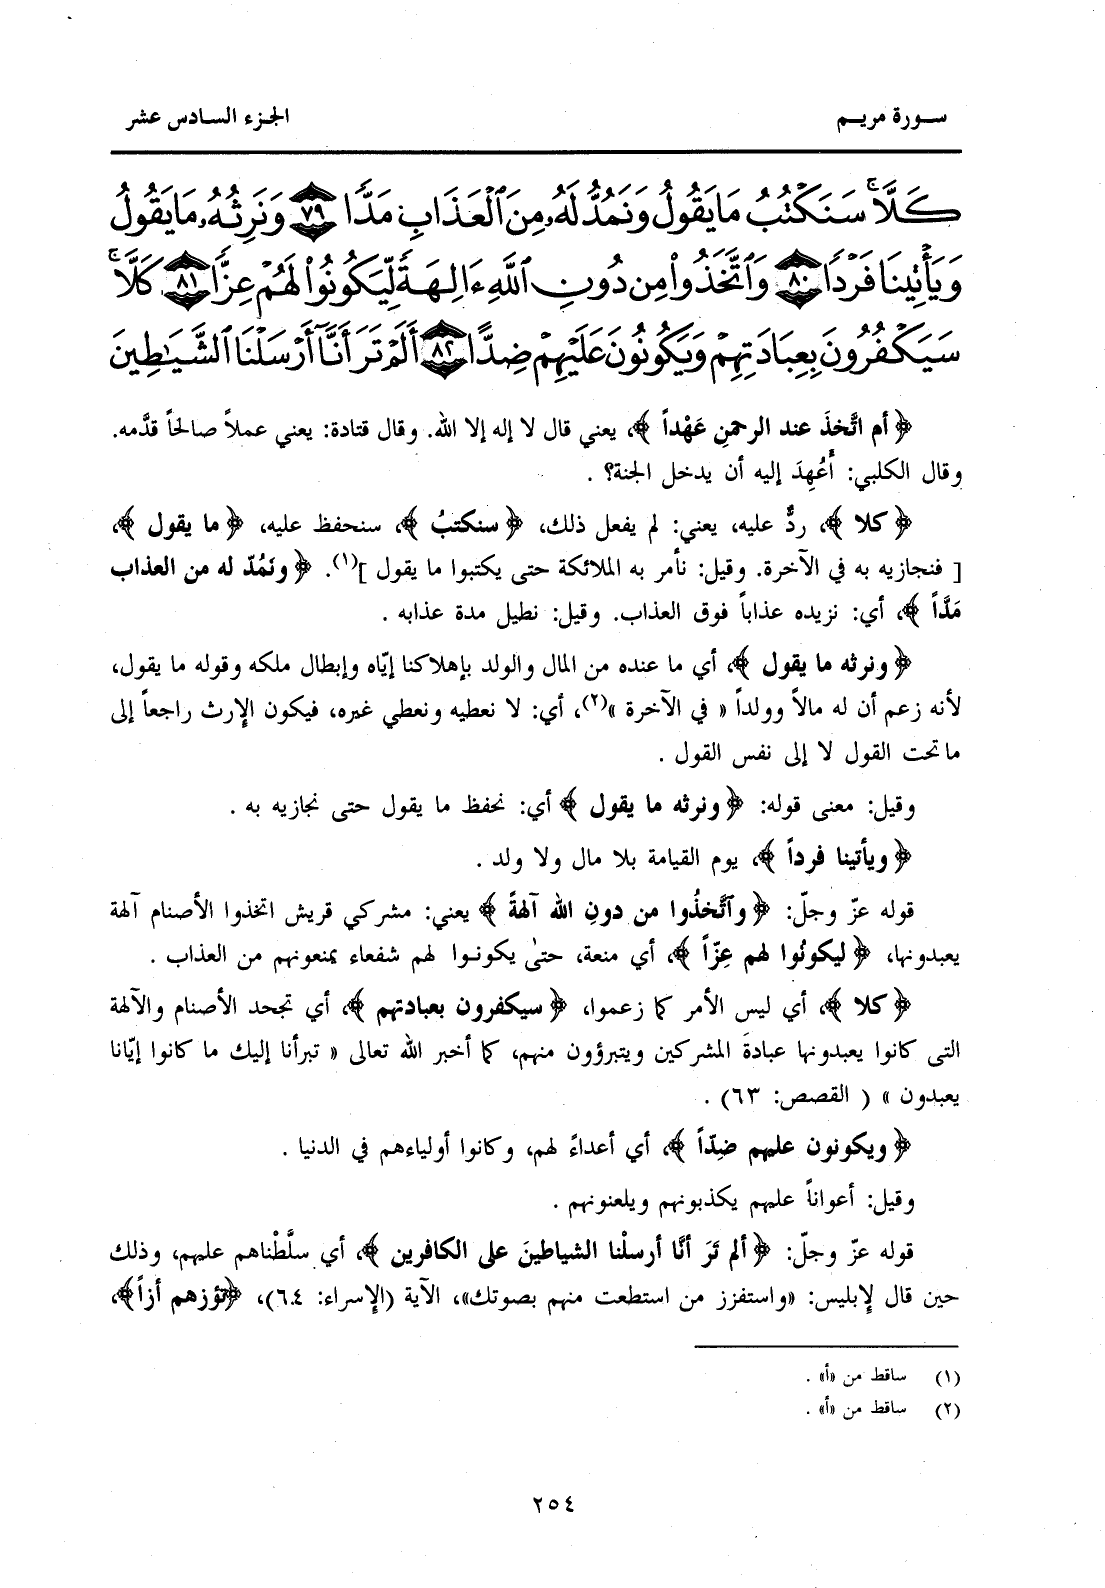 سورة مريم
الجزء السادس عشر
كَلَّا ۚ سَنَكْتُبُ مَا يَقُولُ وَنَمُدُّ لَهُۥ مِنَ ٱلْعَذَابِ مَدًّا ٧٩ وَنَرِثُهُۥ مَا يَقُولُ
وَيَأْتِينَا فَرْدًا ٨٠ وَٱتَّخَذُوا۟ مِن دُونِ ٱللَّهِ ءَالِهَةً لِّيَكُونُوا۟ لَهُمْ عِزًّا ٨١ كَلَّا ۚ
سَيَكْفُرُونَ بِعِبَادَتِهِمْ وَيَكُونُونَ عَلَيْهِمْ ضِدًّا ٨٢ أَلَمْ تَرَ أَنَّآ أَرْسَلْنَا ٱلشَّيَٰطِينَ
﴿ أم اتَّخذَ عند الرحمنِ عَهْداً ﴾، يعني قال لا إله إلا الله. وقال قتادة: يعني عملاً صالحاً قدَّمه.
وقال الكلبي: أَعُهِدَ إليه أن يدخل الجنة؟ .
﴿ كلا ﴾، ردٌّ عليه، يعني: لم يفعل ذلك، ﴿ سنكتبُ ﴾، سنحفظ عليه، ﴿ ما يقول ﴾،
[ فنجازيه به في الآخرة. وقيل: نأمر به الملائكة حتى يكتبوا ما يقول ](١). ﴿ ونَمُدّ له من العذاب
مَدَّاً ﴾، أي: نزيده عذاباً فوق العذاب. وقيل: نطيل مدة عذابه .
﴿ ونرثه ما يقول ﴾، أي ما عنده من المال والولد بإهلاكنا إيّاه وإبطال ملكه وقوله ما يقول،
لأنه زعم أن له مالاً وولداً « في الآخرة »(٢)، أي: لا نعطيه ونعطي غيره، فيكون الإرث راجعاً إلى
ما تحت القول لا إلى نفس القول .
وقيل: معنى قوله: ﴿ ونرثه ما يقول ﴾ أي: نحفظ ما يقول حتى نجازيه به .
﴿ ويأتينا فرداً ﴾، يوم القيامة بلا مال ولا ولد .
قوله عزّ وجلّ: ﴿ وآتَّخذُوا من دونِ الله آلهةً ﴾ يعني: مشركي قريش اتخذوا الأصنام آلهة
يعبدونها، ﴿ ليكونُوا لهم عِزّاً ﴾، أي منعة، حتىٰ يكونوا لهم شفعاء يمنعونهم من العذاب .
﴿ كلا ﴾، أي ليس الأمر كما زعموا، ﴿ سيكفرون بعبادتهم ﴾، أي تجحد الأصنام والآلهة
التى كانوا يعبدونها عبادةَ المشركين ويتبرؤون منهم، كما أخبر الله تعالى « تبرأنا إليك ما كانوا إيّانا
يعبدون » ( القصص: ٦٣) .
﴿ ويكونون عليهم ضِدّاً ﴾، أي أعداءً لهم، وكانوا أولياءهم في الدنيا .
وقيل: أعواناً عليهم يكذبونهم ويلعنونهم .
قوله عزّ وجلّ: ﴿ ألم تَرَ أنَّا أرسلْنا الشياطينَ على الكافرين ﴾، أي سلَّطْناهم عليهم، وذلك
حين قال لإبليس: «واستفزز من استطعت منهم بصوتك»، الآية (الإسراء: ٦٤)، ﴿تؤزهم أزاً﴾،
(١) ساقط من «أ» .
(٢) ساقط من «أ» .
٢٥٤